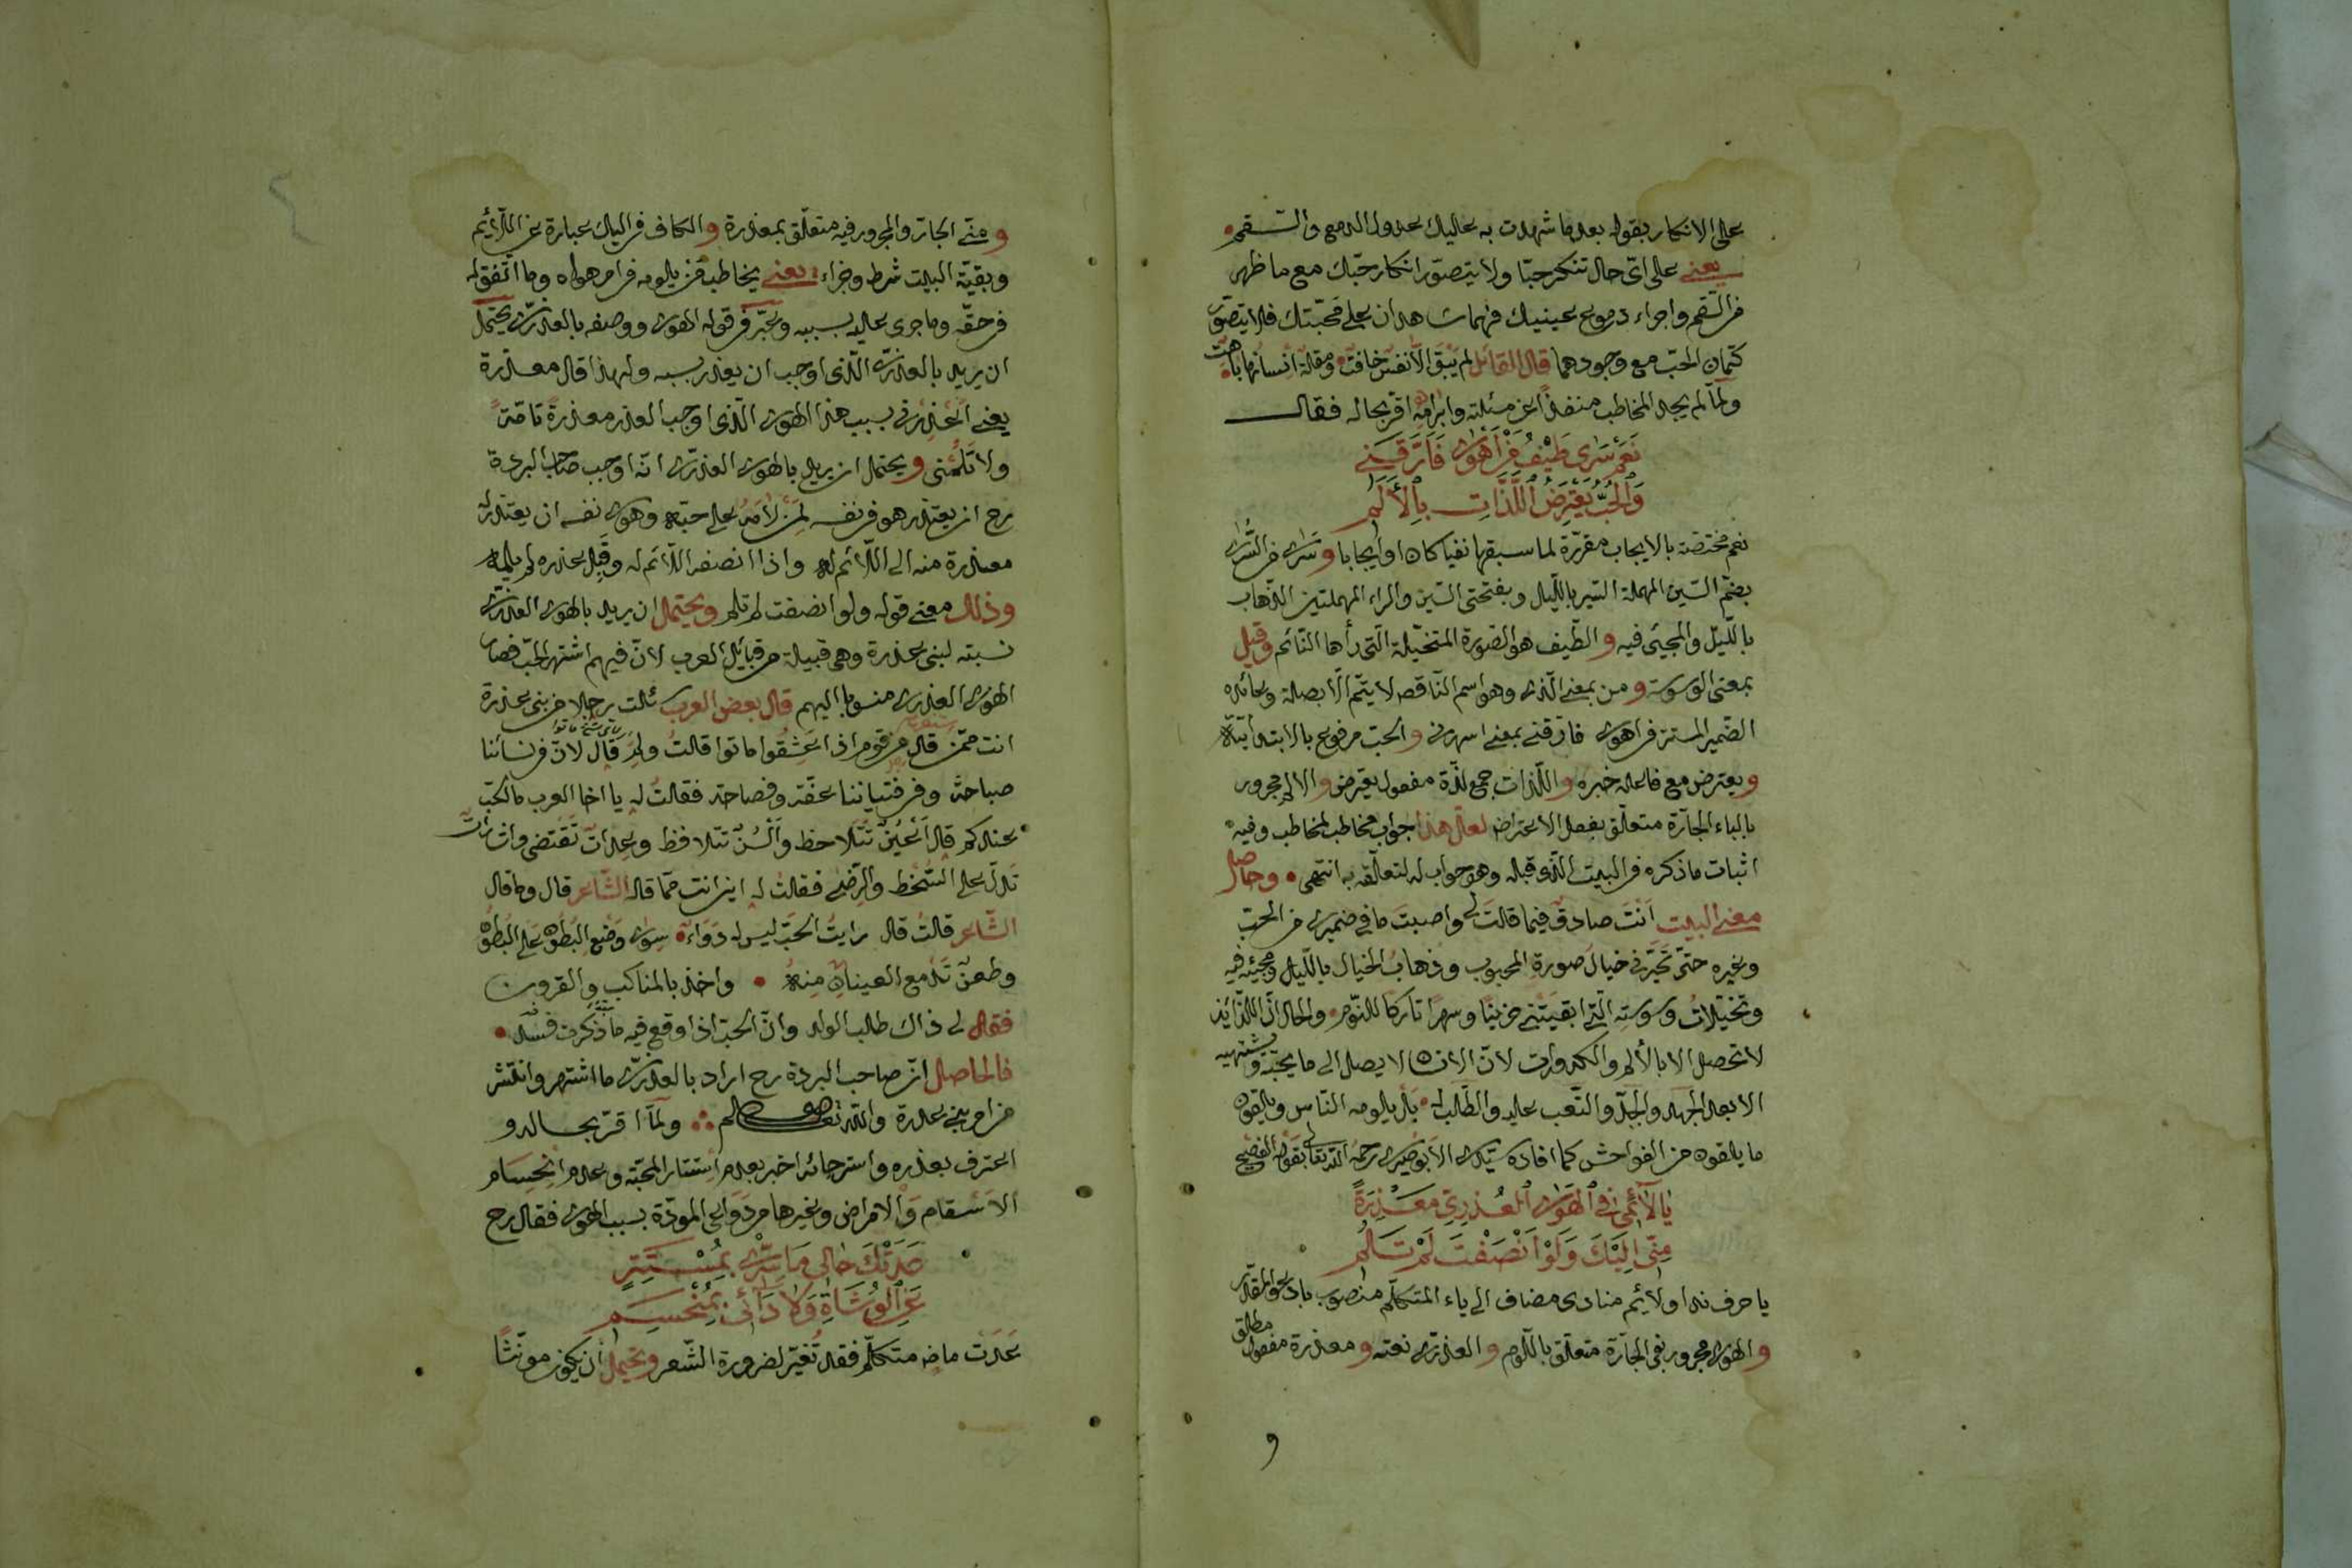 على الانكار بقوله بعدما شهدت به عليك عدول الدمع والسقم
يعني على اىّ حال تنكر حبّا ولا يتصوّر انكار حبّك مع ما ظهر
من السّقم واجراء دموع عينيك فهما شاهدان على محبّتك فلا يتصوّر
كتمان الحبّ مع وجودهما قال القائل لم يبق الّا نفس خافت ومقلة انسانها باهت
ولمّا لم يجد المخاطب منفذا عن مسئلته وابرامه اقرّ بحاله فقال
نَعَمْ سَرَى طَيْفُ مَنْ أَهْوٰى فَأَرَّقَنِي
وَالْحُبُّ يَعْتَرِضُ اللَّذَّاتِ بِالْأَلَمِ
نعم مختصّة بالايجاب مقرّرة لما سبقها نفيا كان او ايجابا وسرى من السُّرى
بضمّ السّين المهملة السّير باللّيل وبفتحتى السّين والراء المهملتين الذّهاب
باللّيل والمجيئ فيه والطّيف هو الصّورة المتخيّلة الّتى رأها النّائم وقيل
بمعنى الوسوسة ومن بمعنى الّذى وهو اسم النّاقص لا يتمّ الّا بصلة وعائده
الضّمير المستتر فى اهوى فارّقنى بمعنى اسهرنى والحبّ مرفوع بالابتدائيّة
ويعترض مع فاعله خبره واللّذات جمع لذّة مفعول يعترض والالم مجرور
بالباء الجارّة متعلّق بفعل الاعتراض لعلّ هذا جواب مخاطب لمخاطب وفيه
اثبات ما ذكره فى البيت الّذى قبله وهو جواب له لتعلّقه به انتهى وحاصل
معنى البيت اَنْتَ صادق فيما قالت لى واصبتَ ما فى ضميرى من الحبّ
وغيره حتّى تحيّرنى خيال صورة المحبوب وذهاب الخيال باللّيل ومجيئه فيه
وتخيّلات وسوسته الّتى ابقيتنى حزينًا وسهرًا تاركًا للنّوم والحال انّ اللّذائذ
لا تحصل الا بالألم والكدورات لانّ الانسان لا يصل الى ما يحبّه ويشتهيه
الا بعد الجهد والجدّ والتّعب عليه والطّلب له بل يلومه النّاس ويلقون
ما يلقون من الفواحش كما افاده سيّدى الأبوصيرى رحمه اللّه تعالى بقوله الفصيح
يَا لَائِمِي فِي الْهَوَى الْعُذْرِيِّ مَعْذِرَةً
مِنِّي إِلَيْكَ وَلَوْ أَنْصَفْتَ لَمْ تَلُمِ
يا حرف ندا ولايم منادى مضاف الى ياء المتكلّم منصوب بادعو المقدّر
والهوى مجرور بفى الجارّة متعلّق باللّوم والعذرىّ نعته ومعذرة مفعول مطلق
و
ومنّى الجارّ والمجرور فيه متعلّق بمعذرة والكاف فى اليك عبارة عن اللّائم
وبقيّة البيت شرط وجزاء يعنى يخاطب من يلومه فى امر هواه وما اتّفق له
فى حقّه وما جرى عليه بسببه وعبّر فى قوله الهوى ووصفه بالعذرىّ يحتمل
ان يريد بالعذرىّ الّذى اوجب ان يعذر بسببه ولهذا قال معذرة
يعنى اعذرنى بسبب هذا الهوى الّذى اوجب العذر معذرةً تامّةً
ولا تلمنى ويحتمل ان يريد بالهوى العذرىّ انّه اوجب صاحب البردة
رح ان يعتذر هو فى نفسه لمن لامه على حبّه وهوى نفسه ان يعتذر له
معذرة منه الى اللّائم له واذا انصف اللّائم له وقبل عذره لم يلمه
وذلك معنى قوله ولو انصفت لم تلم ويحتمل ان يريد بالهوى العذرىّ
نسبته لبنى عذرة وهى قبيلة من قبائل العرب لانّ فيهم اشتهر الحبّ فصار
الهوى العذرى منسوبا اليهم قال بعض العرب سئلت رجلا من بنى عذرة
انت ممّن قال من قوم اذا عشقوا ماتوا قالت ولم قال لانّ فى نسائنا
صباحة وفى فتياننا عفّة وفصاحة فقالت له يا اخا العرب ما الحبّ
عندكم قال اَعْيُنٌ تتلاحظ واَلْسُنٌ تتلافظ وعدات تقتضى واشارات
تدلّ على السّخط والرّضى فقالت له اين انت ممّا قاله الشّاعر قال وما قال
الشّاعر قالت قال رايتُ الحبّ ليس له دواء سوى وضع البطون على البطون
وطعن تدمع العينان منه واخذ بالمناكب والقرون
فقال لى ذاك طلب الولد وانّ الحبّ اذا وقع فيه ما ذكرت فسد
فالحاصل انّ صاحب البردة رح اراد بالعذرىّ ما اشتهر وانتشر
من امر بنى عذرة واللّه تعالى اعلم ولمّا اقرّ بحاله و
اعترف بعذره واسترحائه اخبر بعدم استتار المحبّة وعدم انحسام
الاسقام والامراض وغيرها من دواعى المودّة بسبب الهوى فقال رح
عَدَتْكَ حَالِي مَا سِرِّي بِمُسْتَتِرٍ
عَنِ الْوُشَاةِ وَلَا دَائِي بِمُنْحَسِمِ
عَدَتْ ماض متكلّم فقد تغيّر لضرورة الشّعر ويحتمل ان يكون مونّثًا